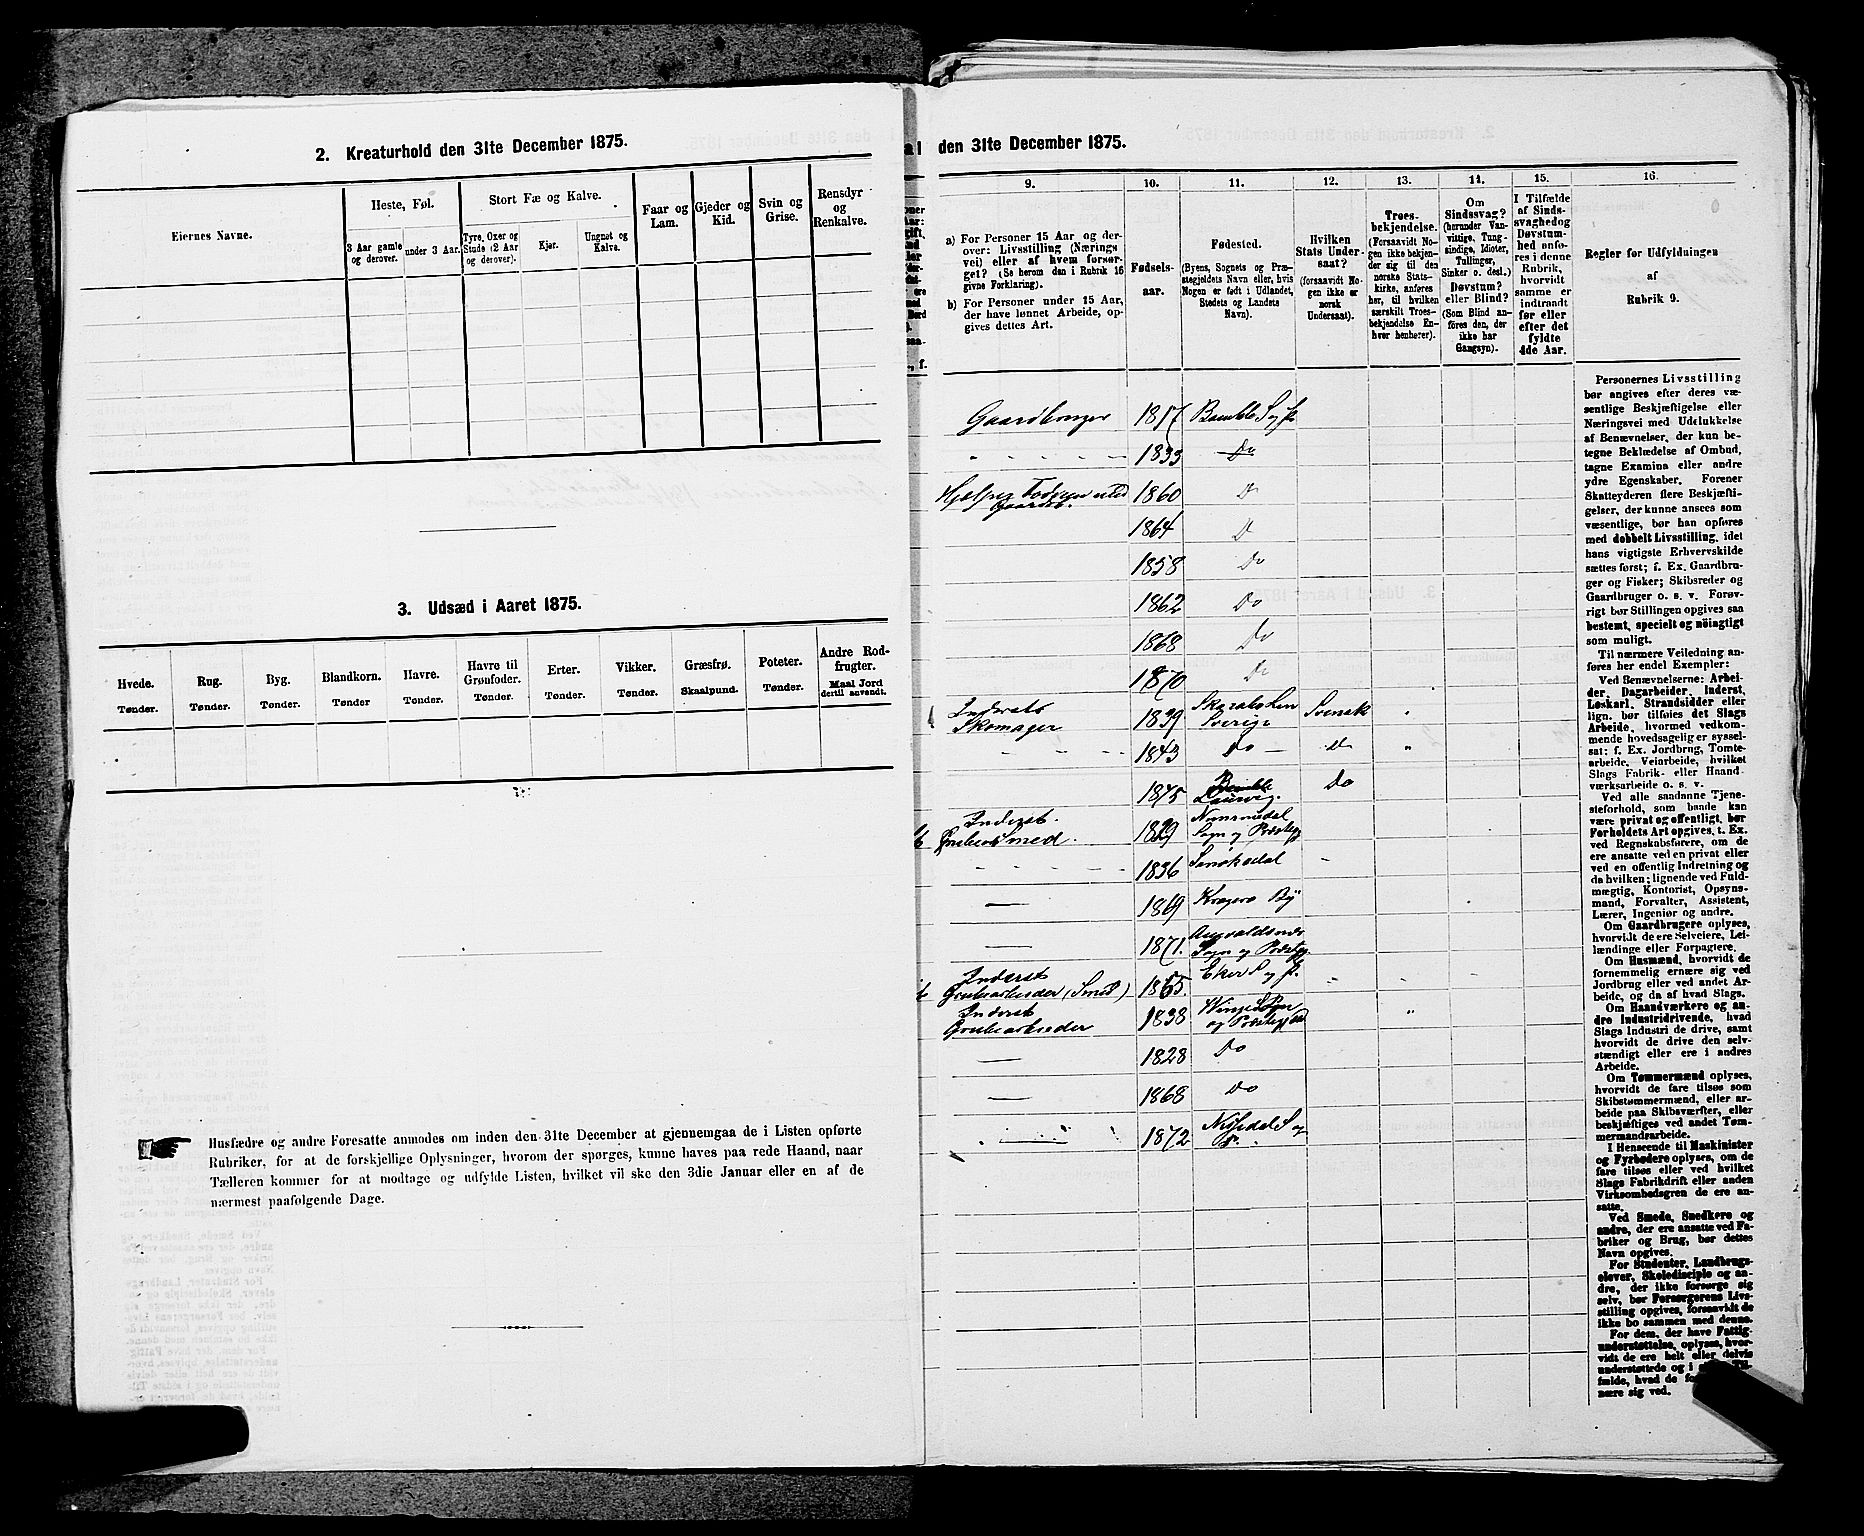 2. Kreaturhold den 31te December 1875.
Eiernes Navne.
Heste, Føl.
3 Aar gamle og derover.
under 3 Aar.
Stort Fæ og Kalve.
Tyre, Oxer og Stude (2 Aar og derover).
Kjør.
Ungnøt og Kalve.
Faar og Lam.
Gjeder og Kid.
Svin og Grise.
Rensdyr og Renkalve.
3. Udsæd i Aaret 1875.
Hvede. Tønder.
Rug. Tønder.
Byg. Tønder.
Blandkorn. Tønder.
Havre. Tønder.
Havre til Grønfoder. Tønder.
Erter. Tønder.
Vikker. Tønder.
Græsfrø. Skaalpund.
Poteter. Tønder.
Andre Rodfrugter. Maal Jord dertil anvendt.
Husfædre og andre Foresatte anmodes om inden den 31te December at gjennemgaa de i Listen opførte
Rubriker, for at de forskjellige Oplysninger, hvorom der spørges, kunne haves paa rede Haand, naar
Tælleren kommer for at modtage og udfylde Listen, hvilket vil ske den 3die Januar eller en af de
nærmest paafølgende Dage.
den 31te December 1875.
9.
a) For Personer 15 Aar og derover: Livsstilling (Næringsvei) eller af hvem forsørget? (Se herom den i Rubrik 16 givne Forklaring).
b) For Personer under 15 Aar, der have lønnet Arbeide, opgives dettes Art.
10.
Fødselsaar.
11.
Fødested.
(Byens, Sognets og Præstegjeldets Navn eller, hvis Nogen er født i Udlandet, Stedets og Landets Navn).
12.
Hvilken Stats Undersaat?
(forsaavidt Nogen ikke er norsk Undersaat).
13.
Troesbekjendelse.
(Forsaavidt Nogen ikke bekjender sig til den norske Statskirke, anføres her, til hvilken særskilt Troesbekjendelse Enhver henhører).
14.
Om Sindssvag? (herunder Vanvittige, Tungsindige, Idioter, Tullinger, Sinker o. desl.) Døvstum? eller Blind? (Som Blind anføres den, der ikke har Gangsyn).
15.
I Tilfælde af Sindssvaghed og Døvstumhed anføres i denne Rubrik, hvorvidt samme er indtraadt før eller efter det fyldte 4de Aar.
16.
Regler før Udfyldningen
af
Rubrik 9.
Gaardbruger 1817 Bamble S og P
1833 Do
Hjelper Faderen med Gaardsb. 1860 D
1864 D
1858 Do
1862 Do
1868 Do
1870 Do
Inderst Skomager 1839 Sverige Svensk
1843 Do do
1845 Bamble Laurvig. Do
Inderst. Smed. 1829 Sogn og Præstegj
1836
1869 Kragerø By
1871. Sogn og Præstegj.
Inderst Grubearbeider (Smed) 1855. Eker S og P.
Inderst Grubearbeider 1838 Sogn og Præstegjeld
1828 Do
1868 Do
1872 Nissedal S og P.
Personernes Livsstilling
bør angives efter deres væ-
sentlige Beskjæftigelse eller
Næringsvei med Udelukkelse
af Benævnelser, der kun be-
tegne Beklædelse af Ombud,
tagne Examina eller andre
ydre Egenskaber. Forener
Skatteyderen flere Beskjæfti-
gelser, der kunne ansees som
væsentlige, bør han opføres
med dobbelt Livsstilling, idet
hans vigtigste Erhvervskilde
sættes først; f. Ex. Gaardbru-
ger og Fisker; Skibsreder og
Gaardbruger o. s. v. Forøv-
rigt bør Stillingen opgives saa
bestemt, specielt og nöiagtigt
som muligt.
Til nærmere Veiledning an-
føres her endel Exempler:
Ved Benævnelserne: Arbei-
der, Dagarbeider, Inderst,
Løskarl, Strandsidder eller
lign. bør tilføies det Slags
Arbeide, hvormed vedkom-
mende hovedsagelig er syssel-
sat; f. Ex. Jordbrug, Tomte-
arbeide, Veiarbeide, hvilket
Slags Fabrik- eller Haand-
værksarbeide o. s. v.
Ved alle saadanne Tjene-
steforhold, som baade kan
være privat og offentligt, bør
Forholdets Art opgives, t. Ex.
ved Regnskabsførere, om de
ere ansatte ved en privat eller
ved en offentlig Indretning og
da hvilken; lignende ved Fuld-
mægtig, Kontorist, Opsyns-
mand, Forvalter, Assistent,
Lærer, Ingeniør og andre.
Om Gaardbrugere oplyses,
hvorvidt de ere Selveiere, Lei-
lændinge eller Forpagtere.
Om Husmænd, hvorvidt de
fornemmelig ernære sig ved
Jordbrug eller ved andet Ar-
beide, og da af hvad Slags.
Om Haandværkere og an-
dre Industridrivende, hvad
Slags Industri de drive, samt
hvorvidt de drive den selv-
stændigt eller ere i andres
Arbeide.
Om Tømmermænd oplyses,
hvorvidt de fare tilsøs som
Skibstømmermænd, eller ar-
beide paa Skibsværfter, eller
beskjæftiges ved andet Tøm-
mermandsarbeide.
I Henseende til Maskinister
og Fyrbødere oplyses, om de
fare tilsøs eller ved hvilket
Slags Fabrikdrift eller anden
Virksombedsgren de ere an-
satte.
Ved Smede, Snedkere og
andre, der ere ansatte ved Fa-
briker og Brug, bør dettes
Navn opgives.
For Studenter, Landbrugs-
elever, Skoledisciple og an-
dre, der ikke forsørge sig
selv, bør Forsørgerens Livs-
stilling opgives, forsaavidt de
ikke bo sammen med denne.
For dem, der have Fattig-
understøttelse, oplyses, hvor-
vidt de ere helt eller delvis
understøttede og i
fælde, hvad de
nære sig ved.